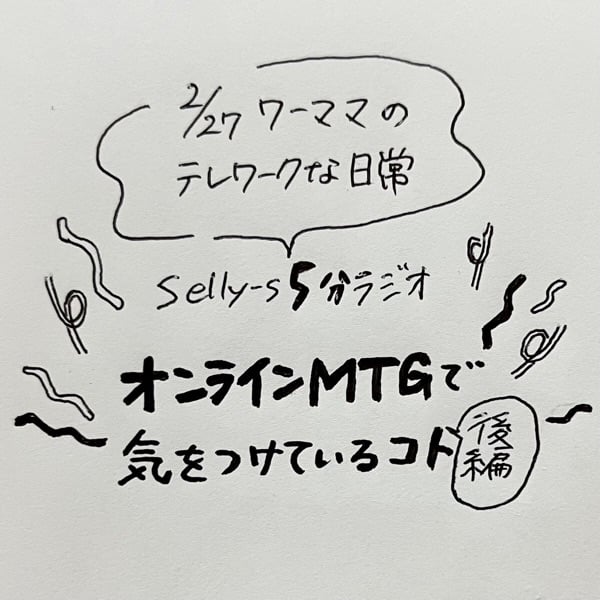 2/27 ワーママの
テレワークな日常
Selly-s 5分ラジオ
オンラインMTGで
気をつけているコト
後編